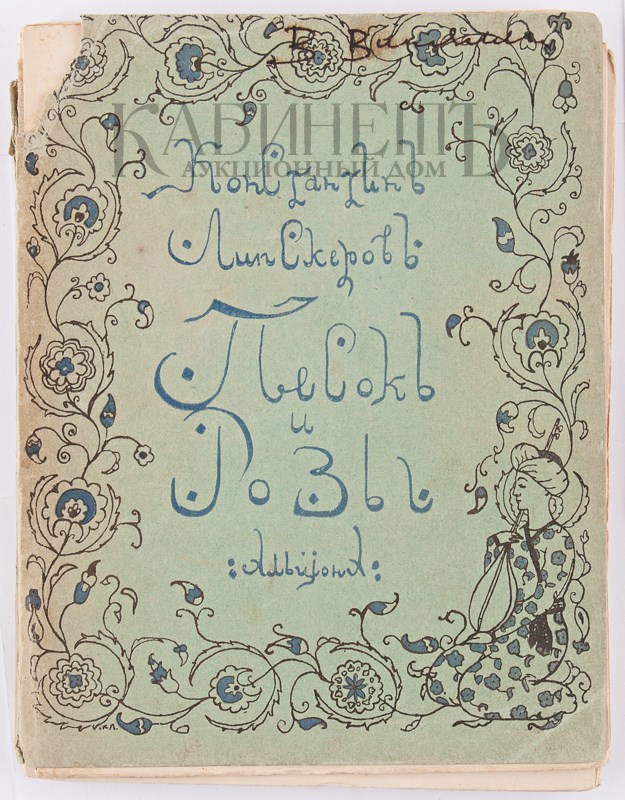 КАБИНЕТЪ
АУКЦИОННЫЙ ДОМ
Константинъ
Липскеровъ
Песокъ
и
Розы
:Альцiона: